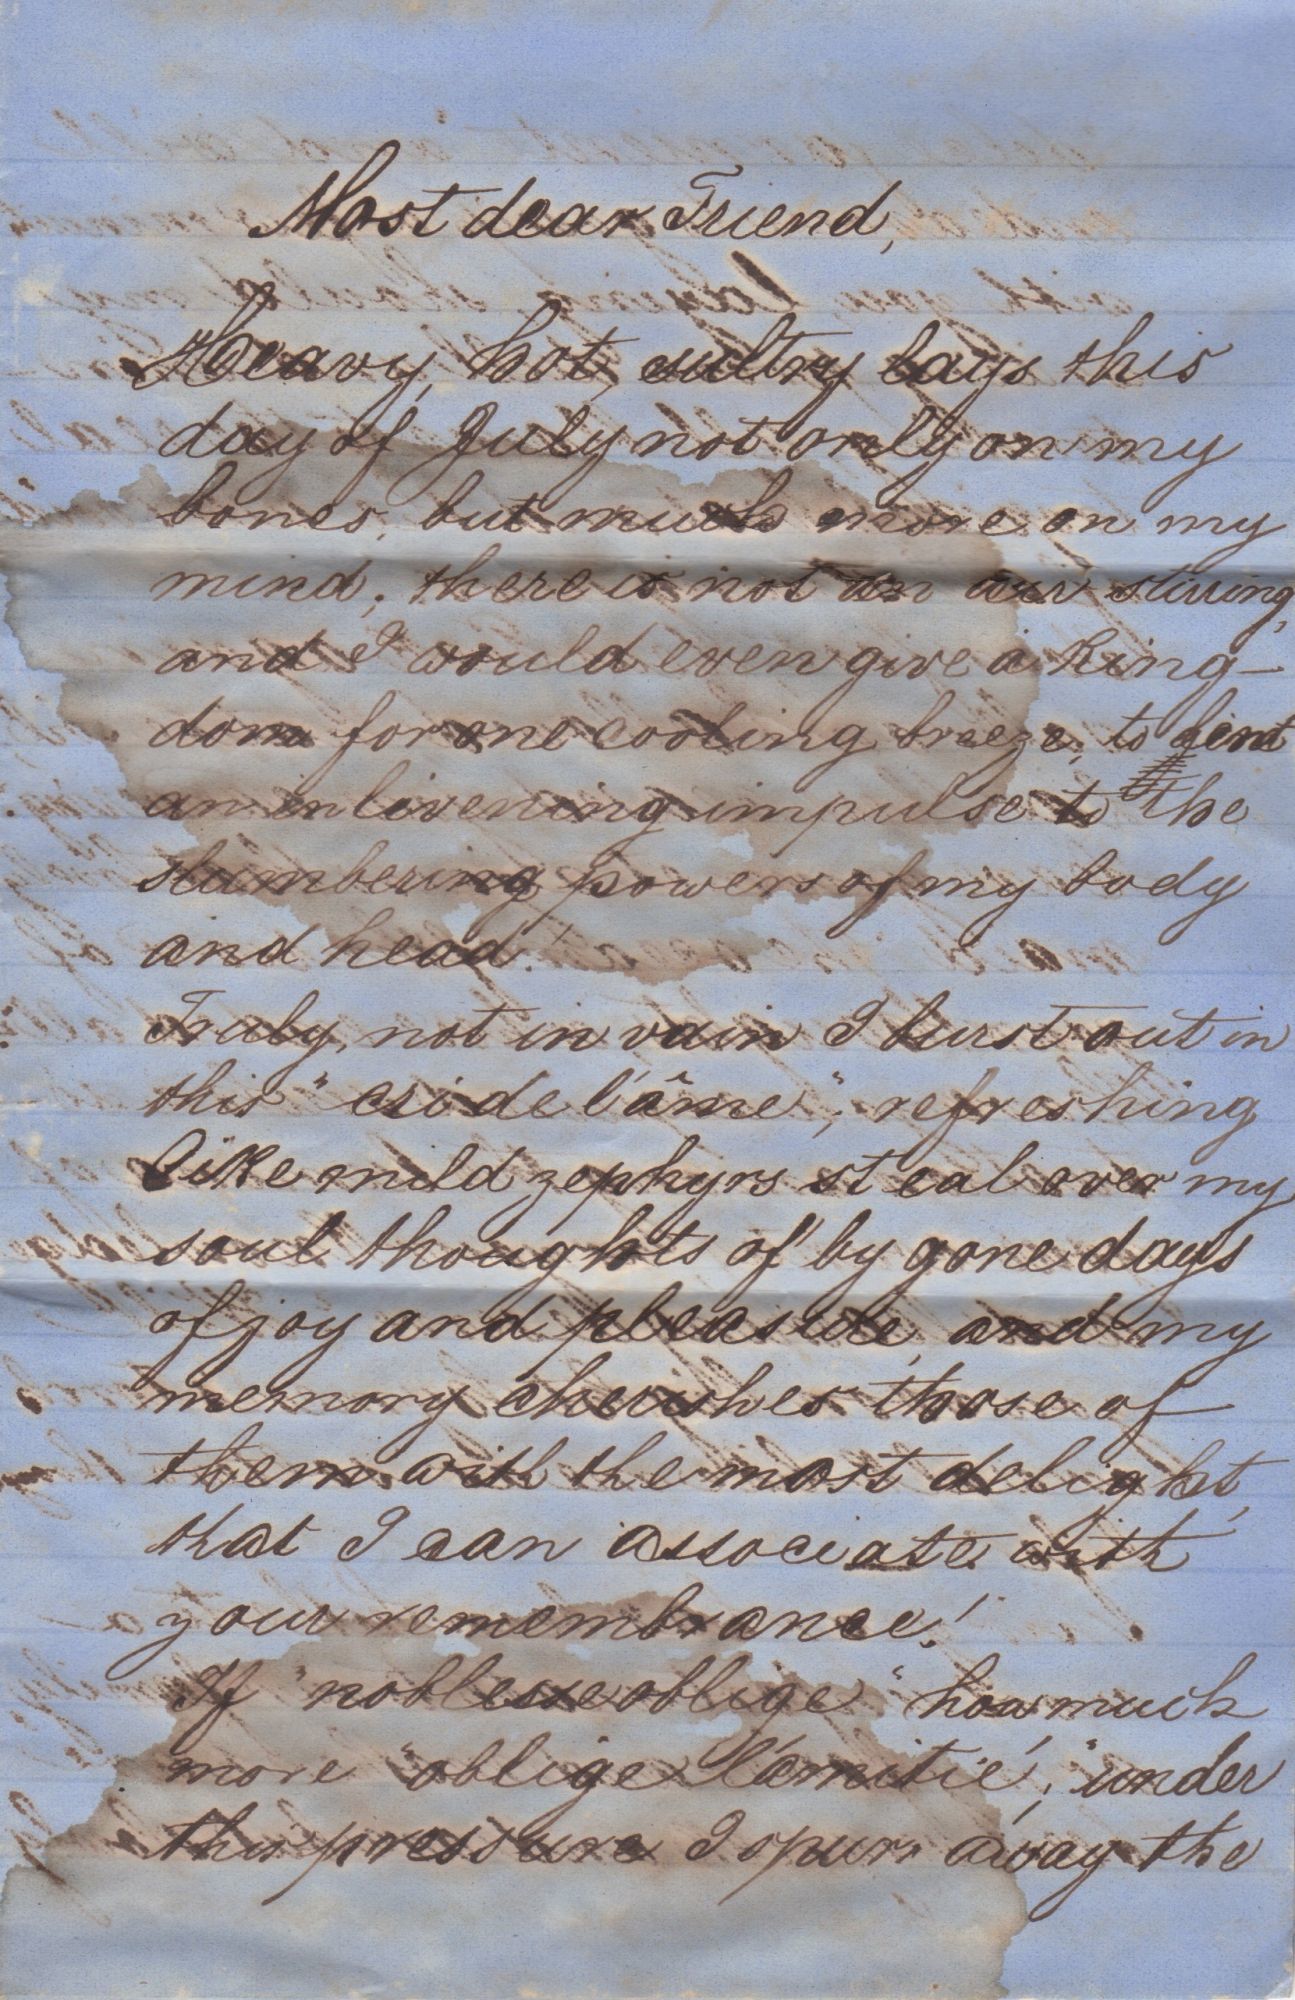 Most dear Friend,
Heavy, hot, sultry lays this
day of July not only on my
bones, but much more on my
mind; there is not an air stirring,
and I would even give a King-
dom for one cooling breeze, to lend
an inlivening impulse to the
slumbering powers of my body
and head!
Truly, not in vain I burst out in
this "cri de l'âme", refreshing
like mild zephyrs steal over my
soul thoughts of by gone days
of joy and pleasure, and my
memory cherishes those of
them with the most delight,
that I can associate with
your remembrance!
If "noblesse oblige" how much
more "oblige l'amitié"; under
this pressure I spurr away the